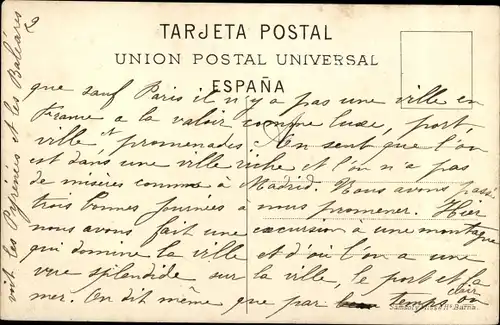 2
TARJETA POSTAL
UNION POSTAL UNIVERSAL
ESPAÑA
que sauf Paris il n'y a pas une ville en
France a la valoir comme luxe, port,
ville et promenades. On sent que l'on
est dans une ville riche et l'on n'a pas
de misères comme à Madrid. Nous avons passé
trois bonnes journées à nous promener. Hier
nous avons fait une excursion à une montagne
qui domine la ville et d'où l'on a une
vue splendide sur la ville, le port et la
mer. On dit même que par temps clair on
voit les Pyrénées et les Baléares